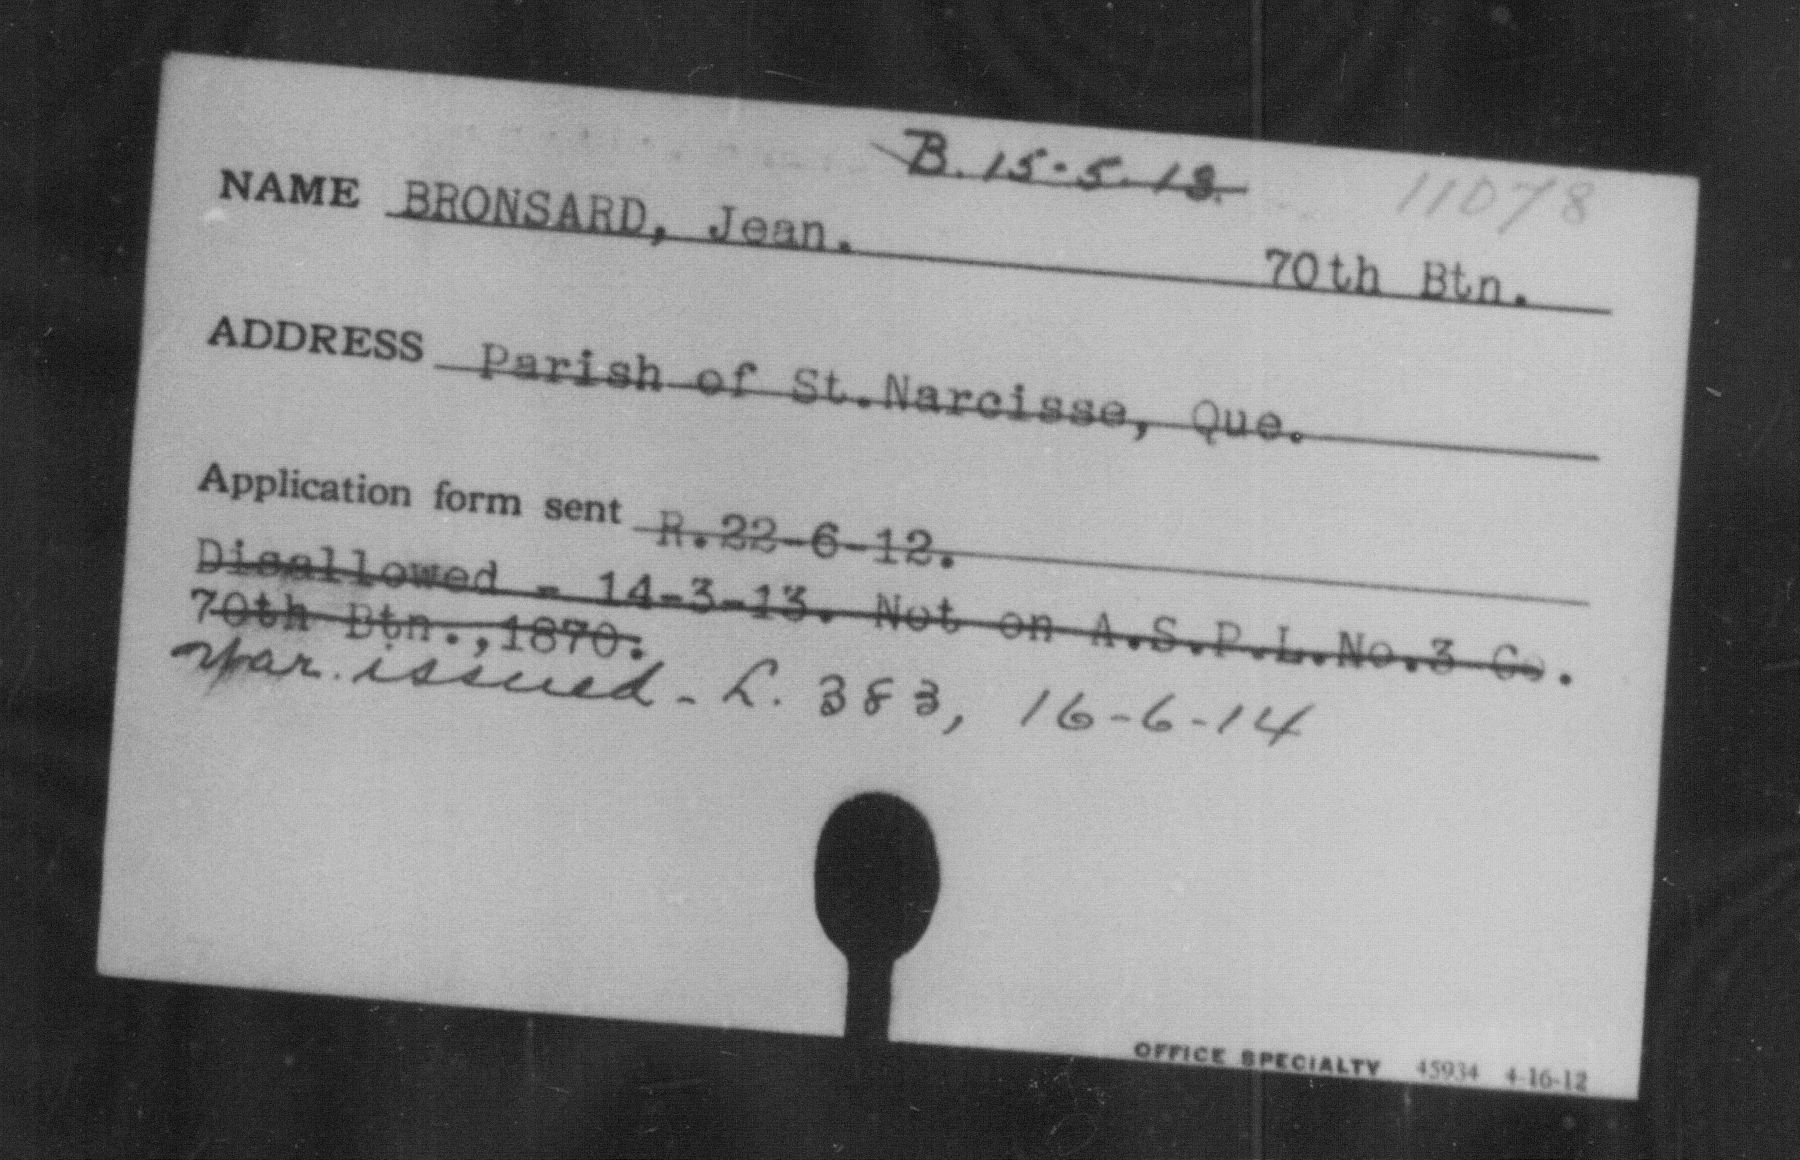 B. 15-5-13.
11078
NAME BRONSARD, Jean. 70th Btn.
ADDRESS Parish of St.Narcisse, Que.
Application form sent R.22-6-12.
Disallowed - 14-3-13. Not on A.S.P.L.No.3 Co.
70th Btn.,1870.
War. issued - L. 383, 16-6-14
OFFICE SPECIALTY 45934 4-16-12